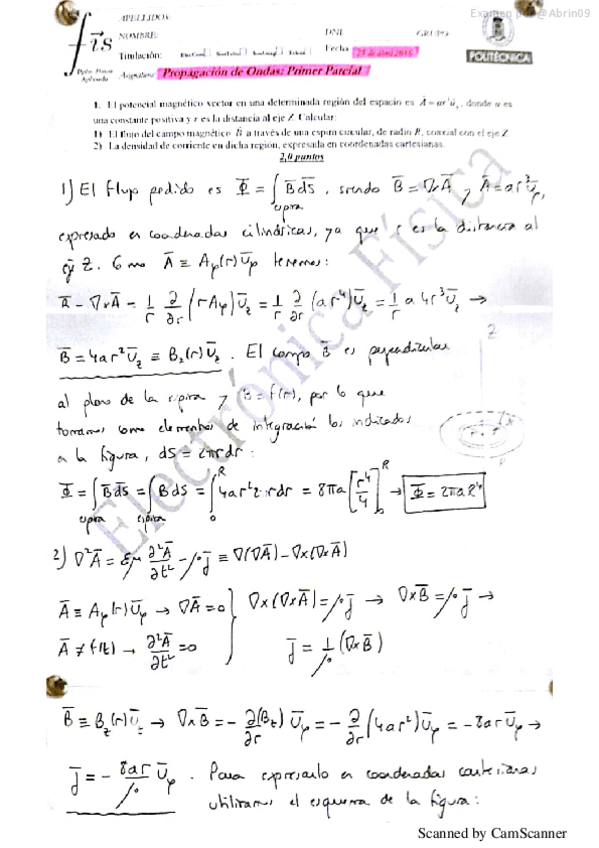 Examen por @Abrin09
fis
Dpto. Física Aplicada
APELLIDOS:
NOMBRE: DNI GRUPO
Titulación: Fecha 25 de abril 2016
Asignatura: Propagación de Ondas: Primer Parcial
POLITÉCNICA
1. El potencial magnético vector en una determinada región del espacio es Ā = ar³ū_φ, donde a es
una constante positiva y r es la distancia al eje Z. Calcular:
1) El flujo del campo magnético B̄ a través de una espira circular, de radio R, coaxial con el eje Z
2) La densidad de corriente en dicha región, expresada en coordenadas cartesianas.
2,0 puntos
1) El flujo pedido es Φ̄ = ∫espira B̄ dS̄, siendo B̄ = ∇×Ā y Ā = ar³ū_φ,
expresado en coordenadas cilíndricas, ya que r es la distancia al
eje Z. Como Ā ≡ A_φ(r)ū_φ tenemos:
B̄ = ∇×Ā = 1/r ∂/∂r (rA_φ)ū_z = 1/r ∂/∂r (ar⁴)ū_z = 1/r a4r³ū_z →
B̄ = 4ar²ū_z ≡ B_z(r)ū_z. El campo B̄ es perpendicular
al plano de la espira y B = f(r), por lo que
tomamos como elementos de integración los indicados
a la figura, dS = 2πrdr:
Z
Φ̄ = ∫espira B̄ dS̄ = ∫espira B dS = ∫₀ᴿ 4ar²2πrdr = 8πa [r⁴/4]₀ᴿ → Φ̄ = 2πaR⁴
2) ∇²Ā = εμ ∂²Ā/∂t² - μj̄ ≡ ∇(∇Ā) - ∇×(∇×Ā)
Ā ≡ A_φ(r)ū_φ → ∇Ā = 0 } ∇×(∇×Ā) = μj̄ → ∇×B̄ = μj̄ →
Ā ≠ f(t) → ∂²Ā/∂t² = 0 } j̄ = 1/μ (∇×B̄)
B̄ ≡ B_z(r)ū_z → ∇×B̄ = - ∂(B_z)/∂r ū_φ = - ∂/∂r (4ar²)ū_φ = -8arū_φ →
j̄ = - 8ar/μ ū_φ. Para expresarlo en coordenadas cartesianas
utilizamos el esquema de la figura:
Electrónica Física
Scanned by CamScanner